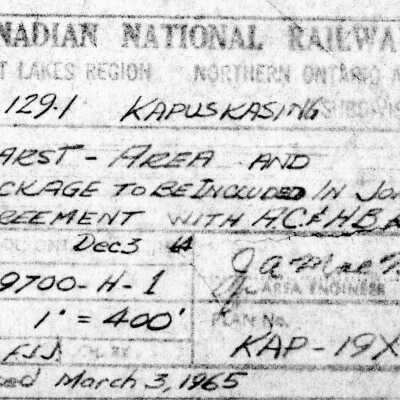 NADIAN NATIONAL RAILWA
T LAKES REGION NORTHERN ONTARIO A
129.1 KAPUSKASING
ARST - AREA AND
CKAGE TO BE INCLUDED IN JO
REEMENT WITH H.C.&H.B.
Dec 3
9700-H-1 AREA ENGINEER
1" = 400' PLAN No.
KAP-19X
March 3, 1965